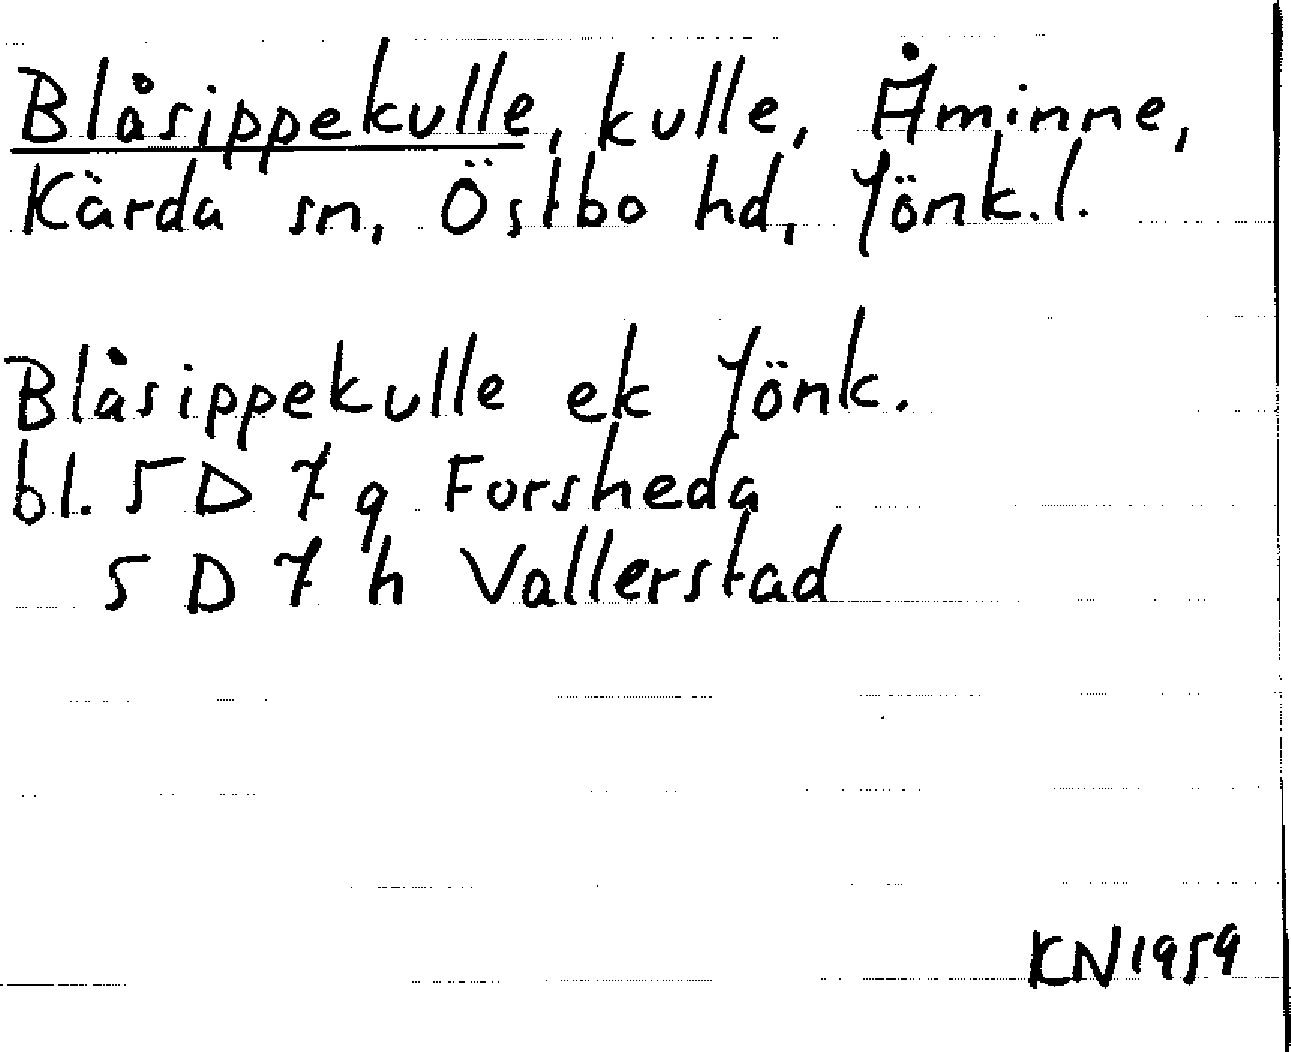 Blåsippekulle, kulle, Åminne,
Kärda sn, Östbo hd, Jönk.l.
Blåsippekulle ek Jönk.
bl. 5 D 7 g Forsheda
5 D 7 h Vallerstad
KN1959